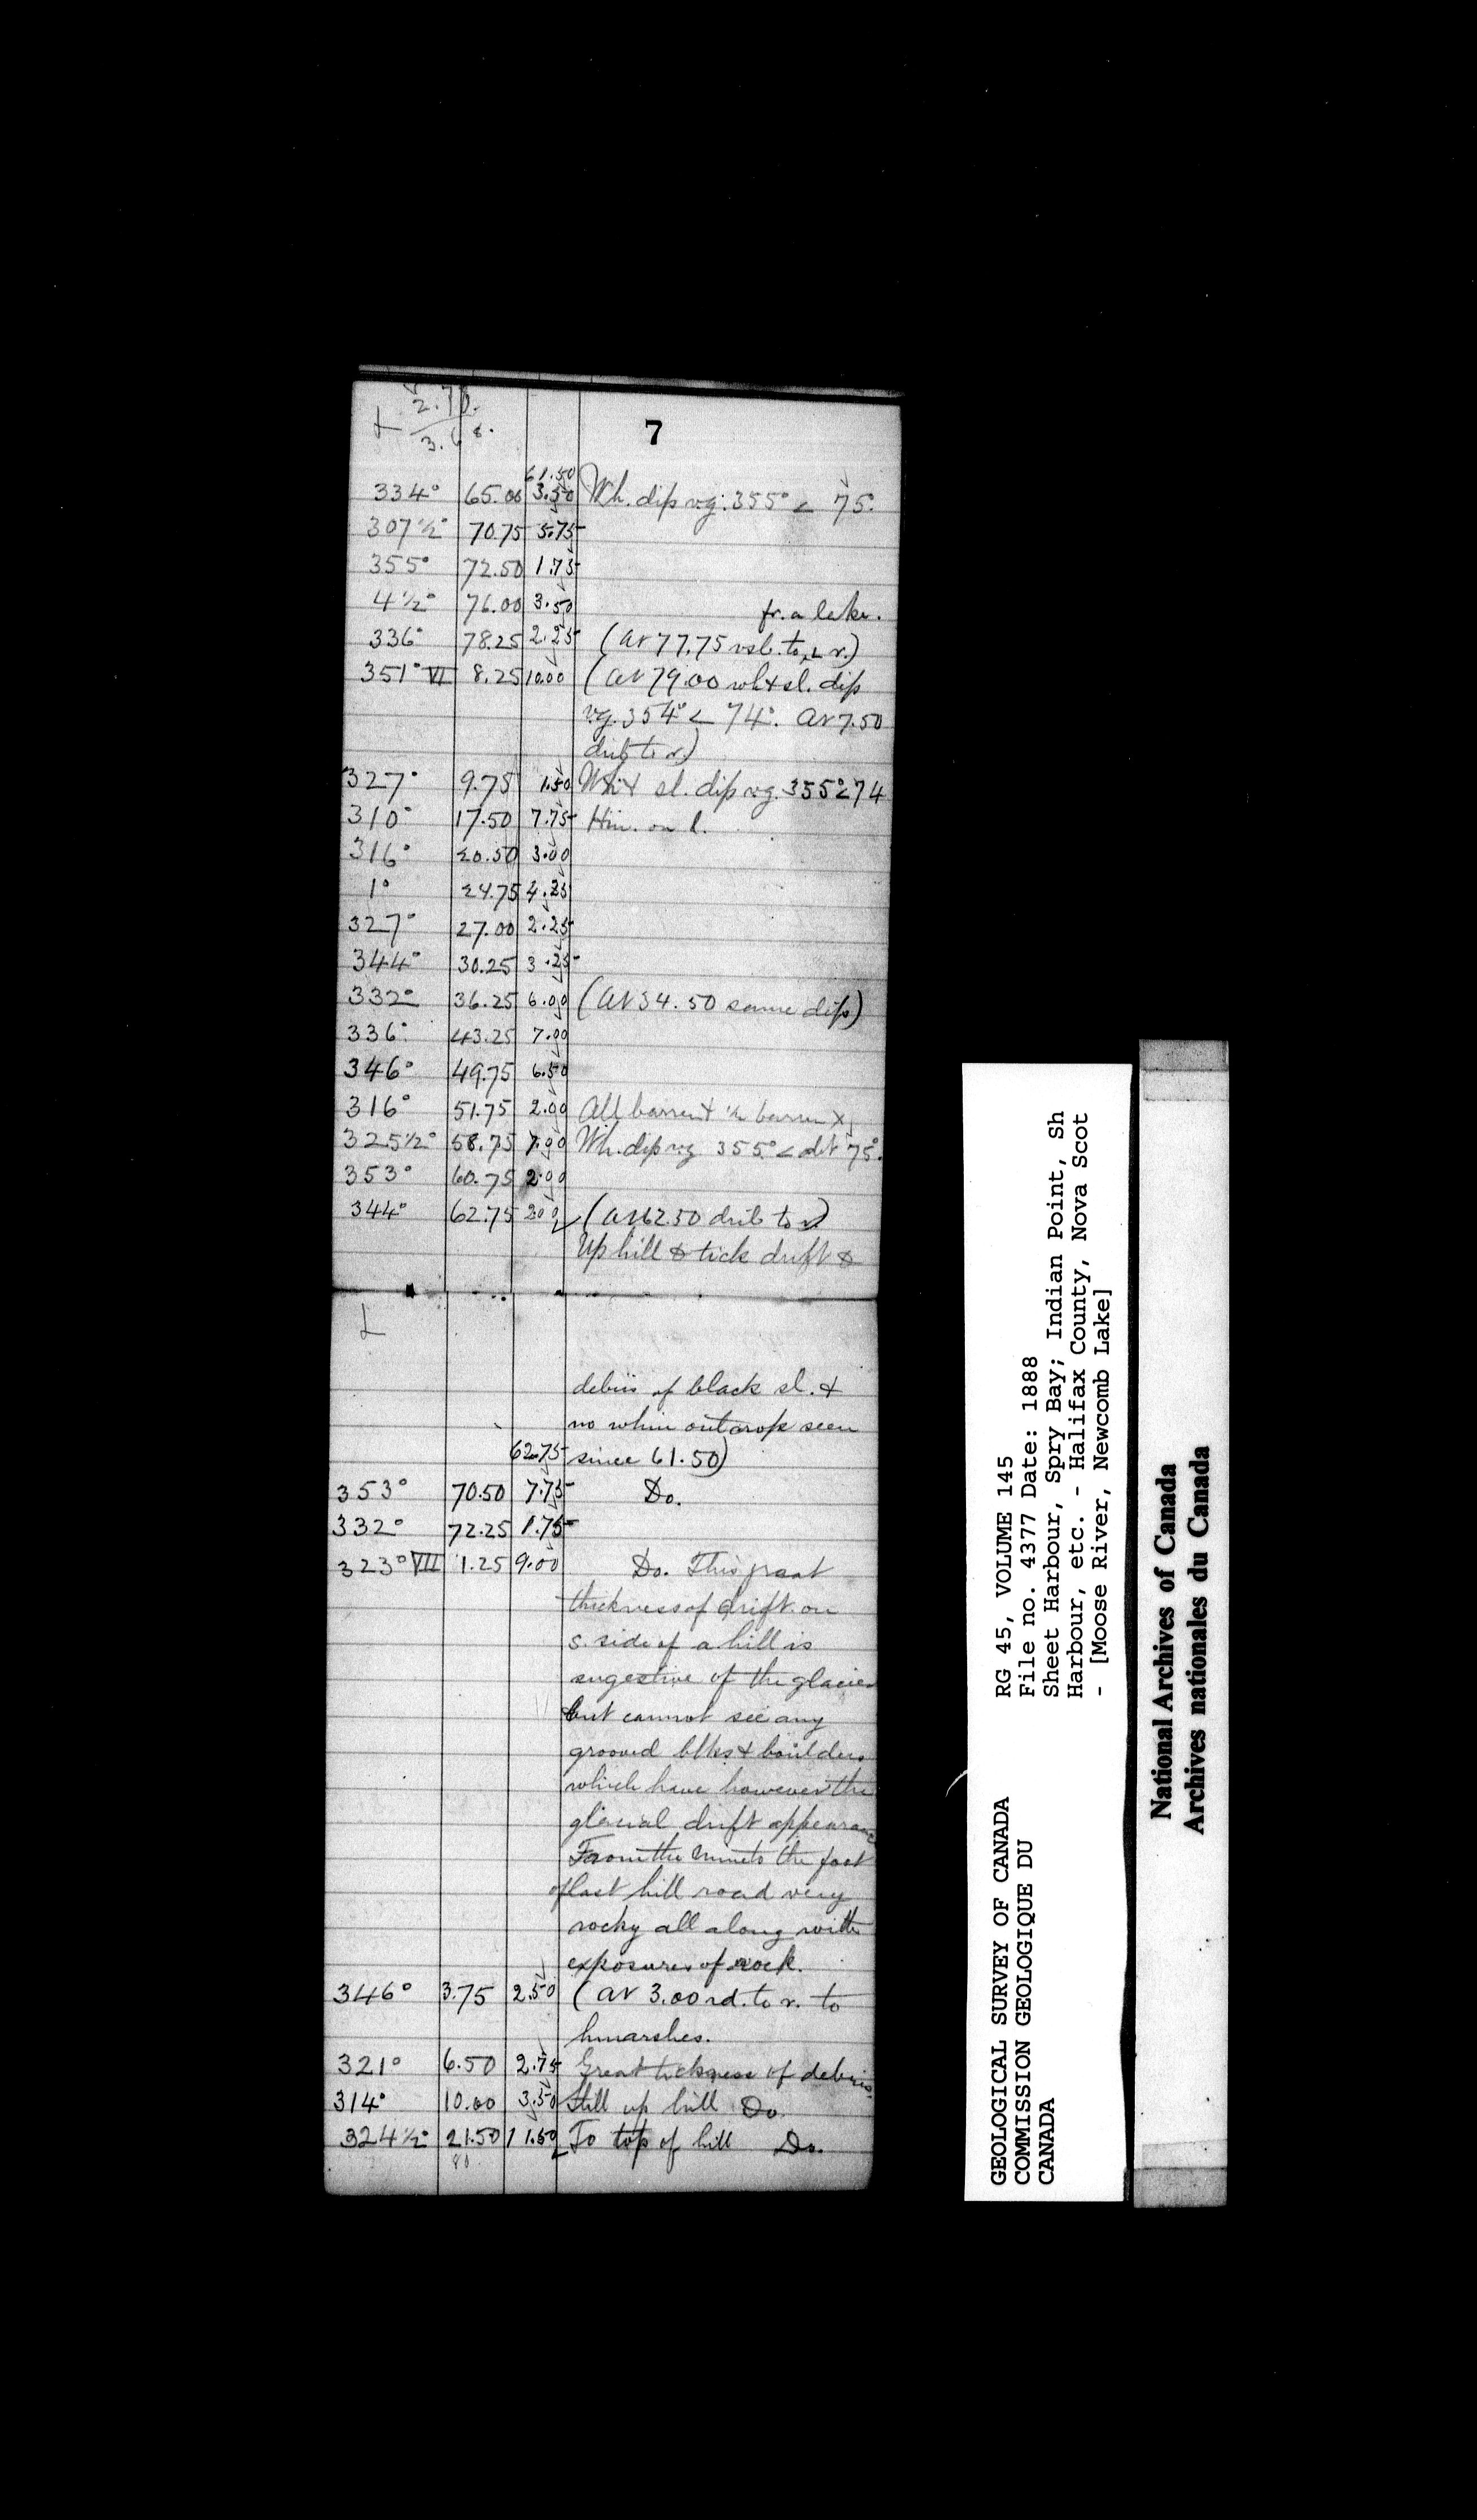 2.78.
3.68.
7
61.50
334° 65.00 3.50 Wh. dip vg. 355° < 75°.
307½° 70.75 5.75
355° 72.50 1.75
4½° 76.00 3.50 fr. a lake.
336° 78.25 2.25 (at 77.75 to r.)
351° VI 8.25 10.00 (at 79.00 wh & sl. dip
vg. 354° < 74°. at 7.50
to r.)
327° 9.75 1.50 Wh & sl. dip vg. 355° < 74
310° 17.50 7.75 on l.
316° 20.50 3.00
1° 24.75 4.25
327° 27.00 2.25
344° 30.25 3.25
332° 36.25 6.00 (at 34.50 same dip)
336° 43.25 7.00
346° 49.75 6.50
316° 51.75 2.00 All barren &
325½° 58.75 7.00 Wh. dip vg. 355° < 75°.
353° 60.75 2.00
344° 62.75 2.00 (at 62.50 to r)
Up hill & tick drift &
debris of black sl. &
no whin outcrop seen
62.75 since 61.50)
353° 70.50 7.75 Do.
332° 72.25 1.75
323° VII 1.25 9.00 Do. This great
thickness of drift on
s. side of a hill is
sugestive of the glacier
but cannot see any
grooved blks & boulders
which have however the
glacial drift appearance
From the mine to the foot
of last hill road very
rocky all along with
exposures of rock.
346° 3.75 2.50 (at 3.00 rd. to r. to
hmarshes.
321° 6.50 2.75 Great tickness of debris.
314° 10.00 3.50 Still up hill Do
324½° 21.50 11.50 To top of hill Do.
80
RG 45, VOLUME 145
File no. 4377 Date: 1888
Sheet Harbour, Spry Bay; Indian Point, Sh
Harbour, etc. - Halifax County, Nova Scot
- [Moose River, Newcomb Lake]
GEOLOGICAL SURVEY OF CANADA
COMMISSION GEOLOGIQUE DU
CANADA
National Archives of Canada
Archives nationales du Canada